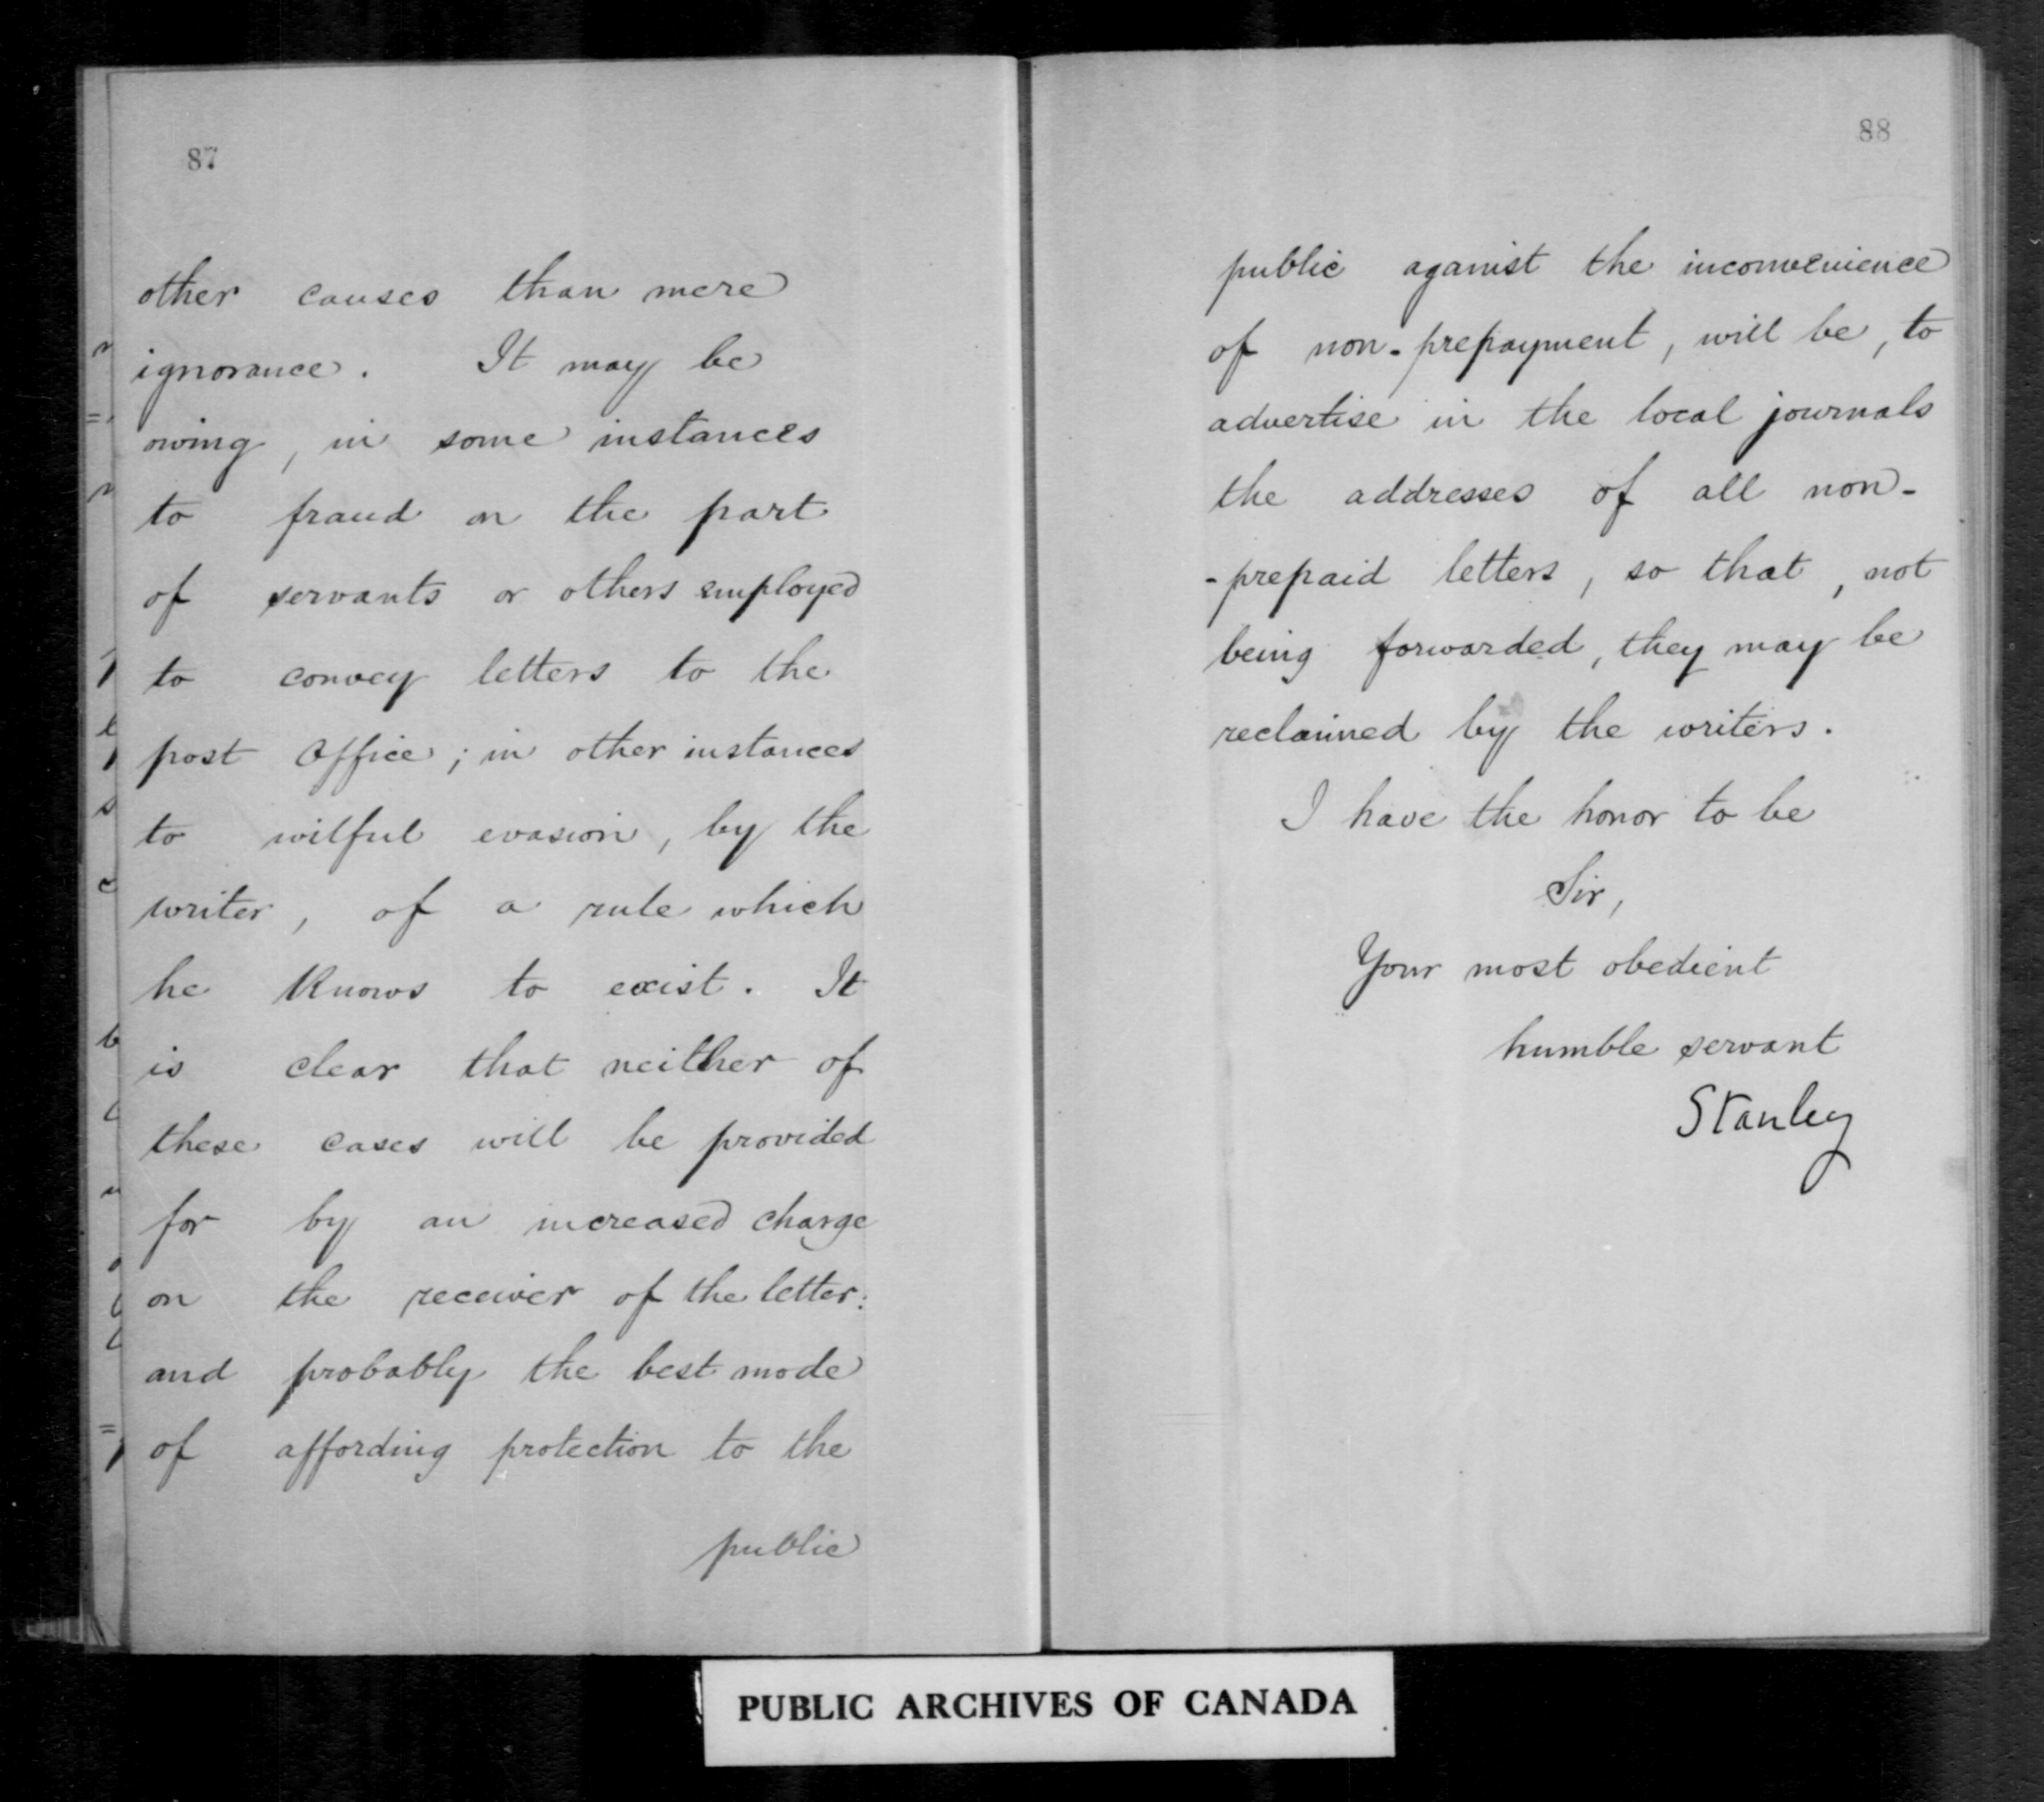 87
other causes than mere
ignorance. It may be
owing, in some instances
to fraud on the part
of servants or others employed
to convey letters to the
post Office; in other instances
to wilful evasion, by the
writer, of a rule which
he knows to exist. It
is clear that neither of
these cases will be provided
for by an increased charge
on the receiver of the letter:
and probably the best mode
of affording protection to the
public
88
public against the inconvenience
of non-prepayment, will be, to
advertise in the local journals
the addresses of all non-
-prepaid letters, so that, not
being forwarded, they may be
reclaimed by the writers.
I have the honor to be
Sir,
Your most obedient
humble servant
Stanley
PUBLIC ARCHIVES OF CANADA